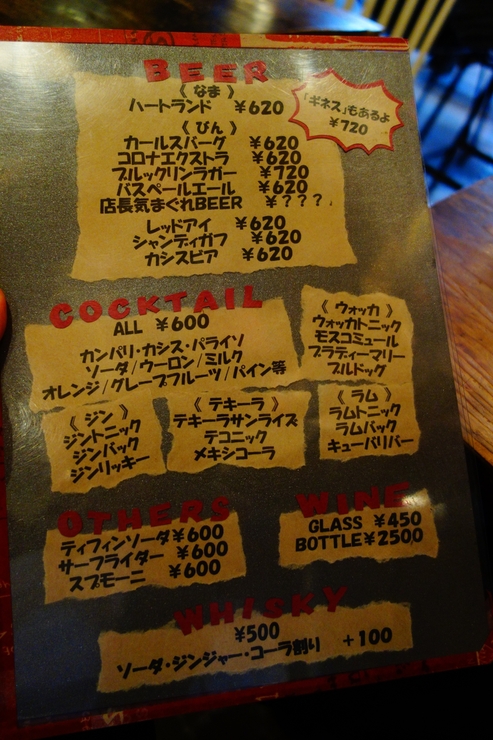 BEER
《 なま 》
ハートランド ¥620
「ギネス」もあるよ
¥720
《 びん 》
カールスバーグ ¥620
コロナエクストラ ¥620
ブルックリンラガー ¥720
バスペールエール ¥620
店長気まぐれBEER ¥？？？.
レッドアイ ¥620
シャンディガフ ¥620
カシスビア ¥620
COCKTAIL
ALL ¥600
カンパリ・カシス・パライソ
ソーダ/ウーロン/ミルク
オレンジ/グレープフルーツ/パイン等
《 ウォッカ 》
ウォッカトニック
モスコミュール
ブラディーマリー
ブルドッグ
《 ジン 》
ジントニック
ジンバック
ジンリッキー
《 テキーラ 》
テキーラサンライズ
テコニック
メキシコーラ
《 ラム 》
ラムトニック
ラムバック
キューバリバー
OTHERS
ティフィンソーダ¥600
サーフライダー ¥600
スプモーニ ¥600
WINE
GLASS ¥450
BOTTLE¥2500
WHISKY
¥500
ソーダ・ジンジャー・コーラ割り +100